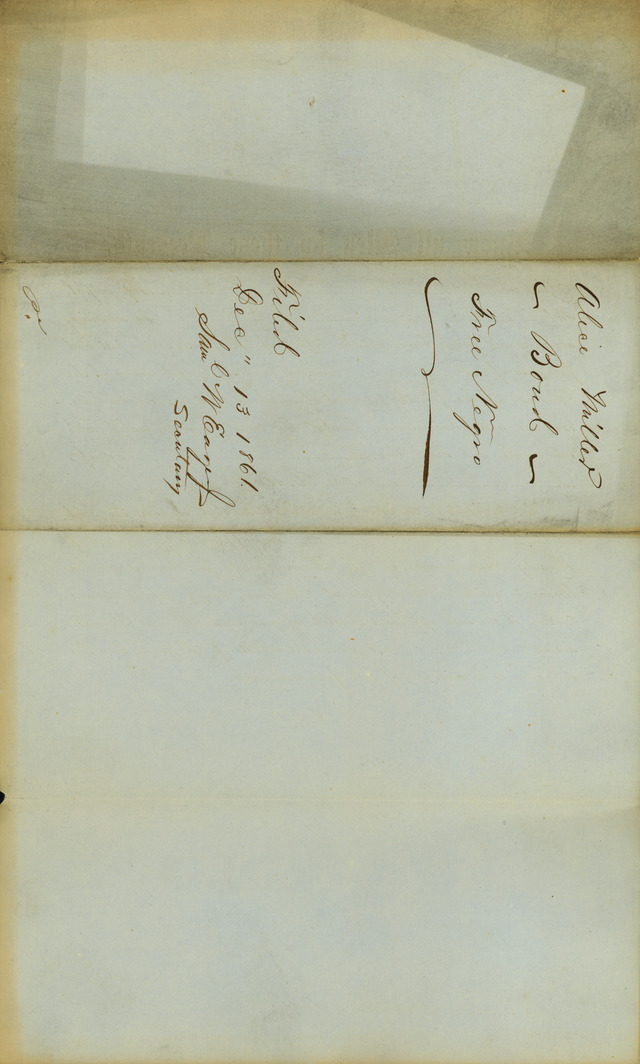 Alice Miller
~ Bond ~
Free Negro
Filed
Dec" 13 1861.
Saml W Eager Jr
Secretary
P.